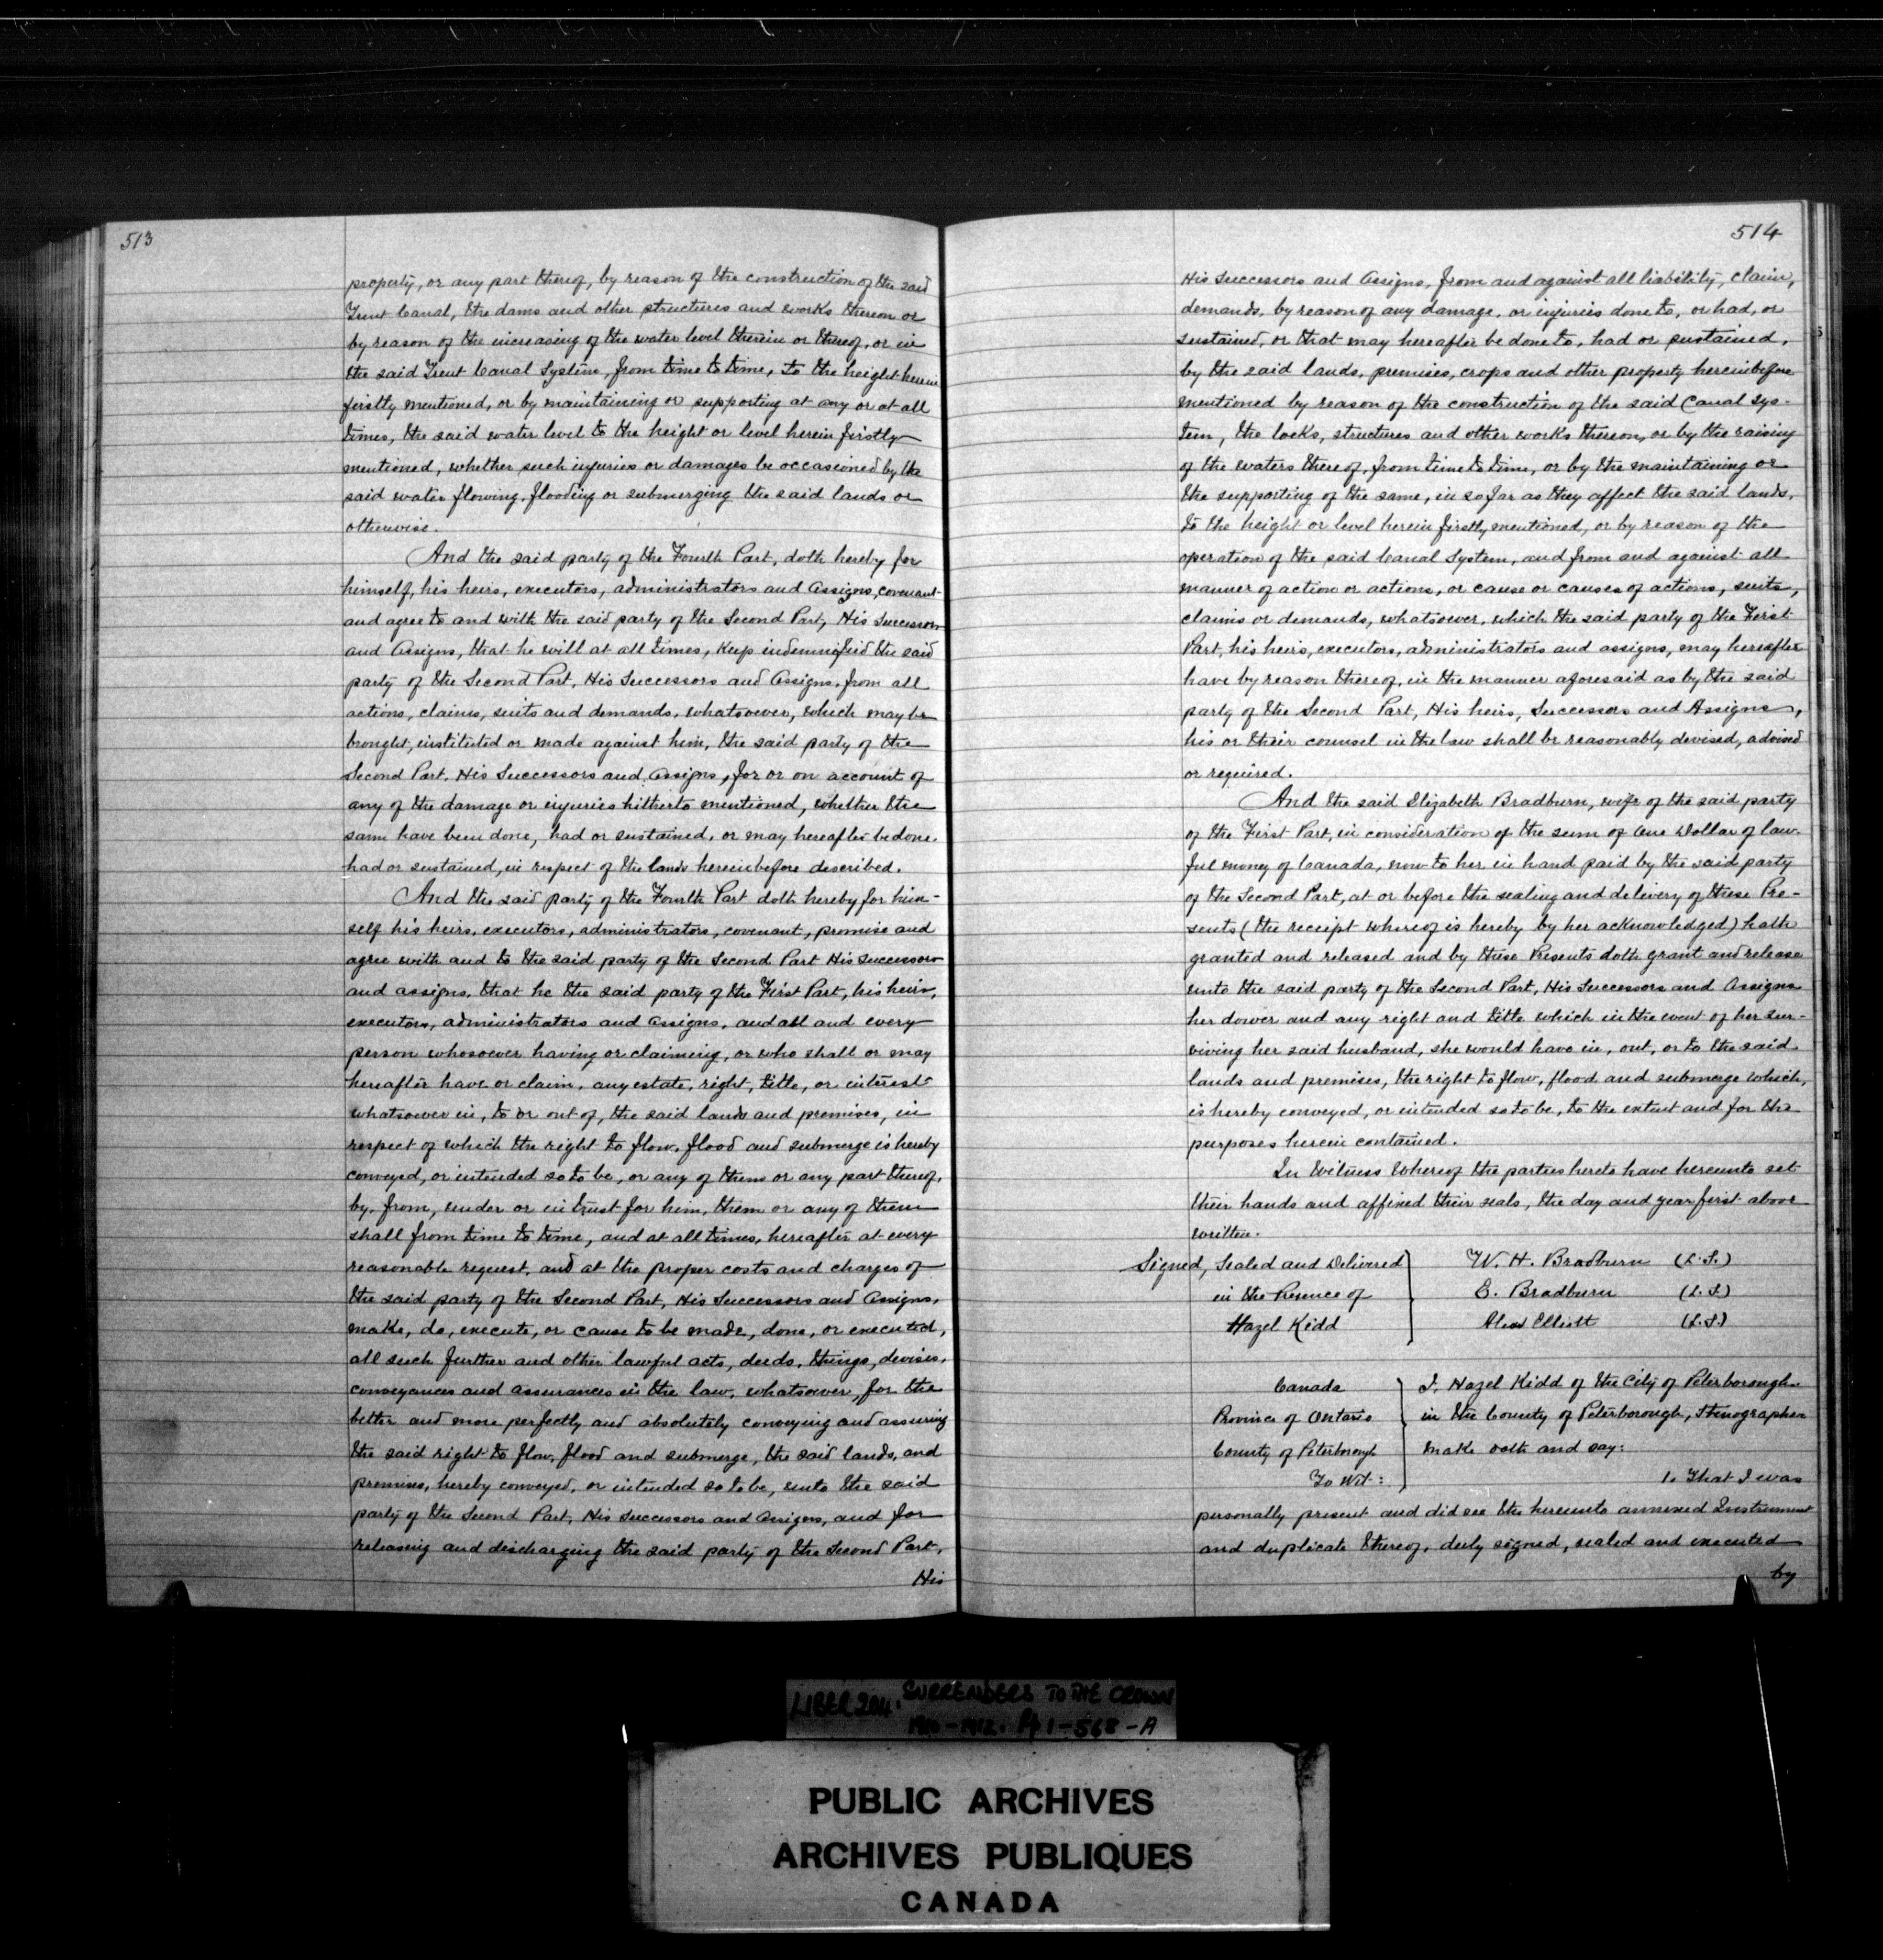 513
property, or any part thereof, by reason of the construction of the said
Trent Canal, the dams and other structures and works thereon or
by reason of the increasing of the water level therein or thereof, or in
the said Trent Canal System, from time to time, to the height herein
firstly mentioned, or by maintaining or supporting at any or at all
times, the said water level to the height or level herein firstly
mentioned, whether such injuries or damages be occasioned by the
said water flowing, flooding or submerging the said lands or
otherwise.
And the said party of the Fourth Part, doth hereby for
himself, his heirs, executors, administrators and Assigns, covenant
and agree to and with the said party of the Second Part, His Successors
and Assigns, that he will at all times, keep indemnified the said
party of the Second Part, His Successors and Assigns, from all
actions, claims, suits and demands, whatsoever, which may be
brought, instituted or made against him, the said party of the
Second Part, His Successors and Assigns, for or on account of
any of the damage or injuries hitherto mentioned, whether the
same have been done, had or sustained, or may hereafter be done,
had or sustained, in respect of the lands hereinbefore described.
And the said party of the Fourth Part doth hereby for him-
self his heirs, executors, administrators, covenant, promise and
agree with and to the said party of the Second Part His Successors
and assigns, that he the said party of the First Part, his heirs,
executors, administrators and Assigns, and all and every
person whosoever having or claiming, or who shall or may
hereafter have or claim, any estate, right, title, or interest
whatsoever in, to or out of, the said lands and premises, in
respect of which the right to flow, flood and submerge is hereby
conveyed, or intended so to be, or any of them or any part thereof,
by, from, under or in trust for him, them or any of them
shall from time to time, and at all times, hereafter at every
reasonable request, and at the proper costs and charges of
the said party of the Second Part, His Successors and Assigns,
make, do, execute, or cause to be made, done, or executed,
all such further and other lawful acts, deeds, things, devises,
conveyances and assurances in the law, whatsoever, for the
better and more perfectly and absolutely conveying and assuring
the said right to flow, flood and submerge, the said lands, and
premises, hereby conveyed, or intended so to be, unto the said
party of the Second Part, His Successors and Assigns, and for
releasing and discharging the said party of the Second Part,
His
514
His Successors and Assigns, from and against all liability, claim,
demands, by reason of any damage, or injuries done to, or had, or
sustained, or that may hereafter be done to, had or sustained,
by the said lands, premises, crops and other property hereinbefore
mentioned by reason of the construction of the said Canal Sys-
tem, the locks, structures and other works thereon, or by the raising
of the waters thereof, from time to time, or by the maintaining or
the supporting of the same, in so far as they affect the said lands,
to the height or level herein firstly mentioned, or by reason of the
operation of the said Canal System, and from and against all
manner of action or actions, or cause or causes of actions, suits,
claims or demands, whatsoever, which the said party of the First
Part, his heirs, executors, administrators and assigns, may hereafter
have by reason thereof, in the manner aforesaid as by the said
party of the Second Part, His heirs, Successors and Assigns,
his or their counsel in the law shall be reasonably devised, advised
or required.
And the said Elizabeth Bradburn, wife of the said party
of the First Part, in consideration of the sum of One Dollar of law-
ful money of Canada, now to her in hand paid by the said party
of the Second Part, at or before the sealing and delivery of these Pre-
sents (the receipt whereof is hereby by her acknowledged) hath
granted and released and by these Presents doth grant and release
unto the said party of the Second Part, His Successors and Assigns
her dower and any right and title which in the event of her sur-
viving her said husband, she would have in, out, or to the said
lands and premises, the right to flow, flood and submerge which,
is hereby conveyed, or intended so to be, to the extent and for the
purposes herein contained.
In Witness Whereof the parties hereto have hereunto set
their hands and affixed their seals, the day and year first above
written.
Signed, Sealed and Delivered W. H. Bradburn (L.S.)
in the Presence of E. Bradburn (L.S.)
Hazel Kidd Alex Elliott (L.S.)
Canada I, Hazel Kidd of the City of Peterborough
Province of Ontario in the County of Peterborough, Stenographer
County of Peterborough make oath and say:
To Wit: 1. That I was
personally present and did see the hereunto annexed Instrument
and duplicate thereof, duly signed, sealed and executed
by
LIBER 204. SURRENDERS TO THE CROWN
1910-1912. Pp 1-568-A
PUBLIC ARCHIVES
ARCHIVES PUBLIQUES
CANADA